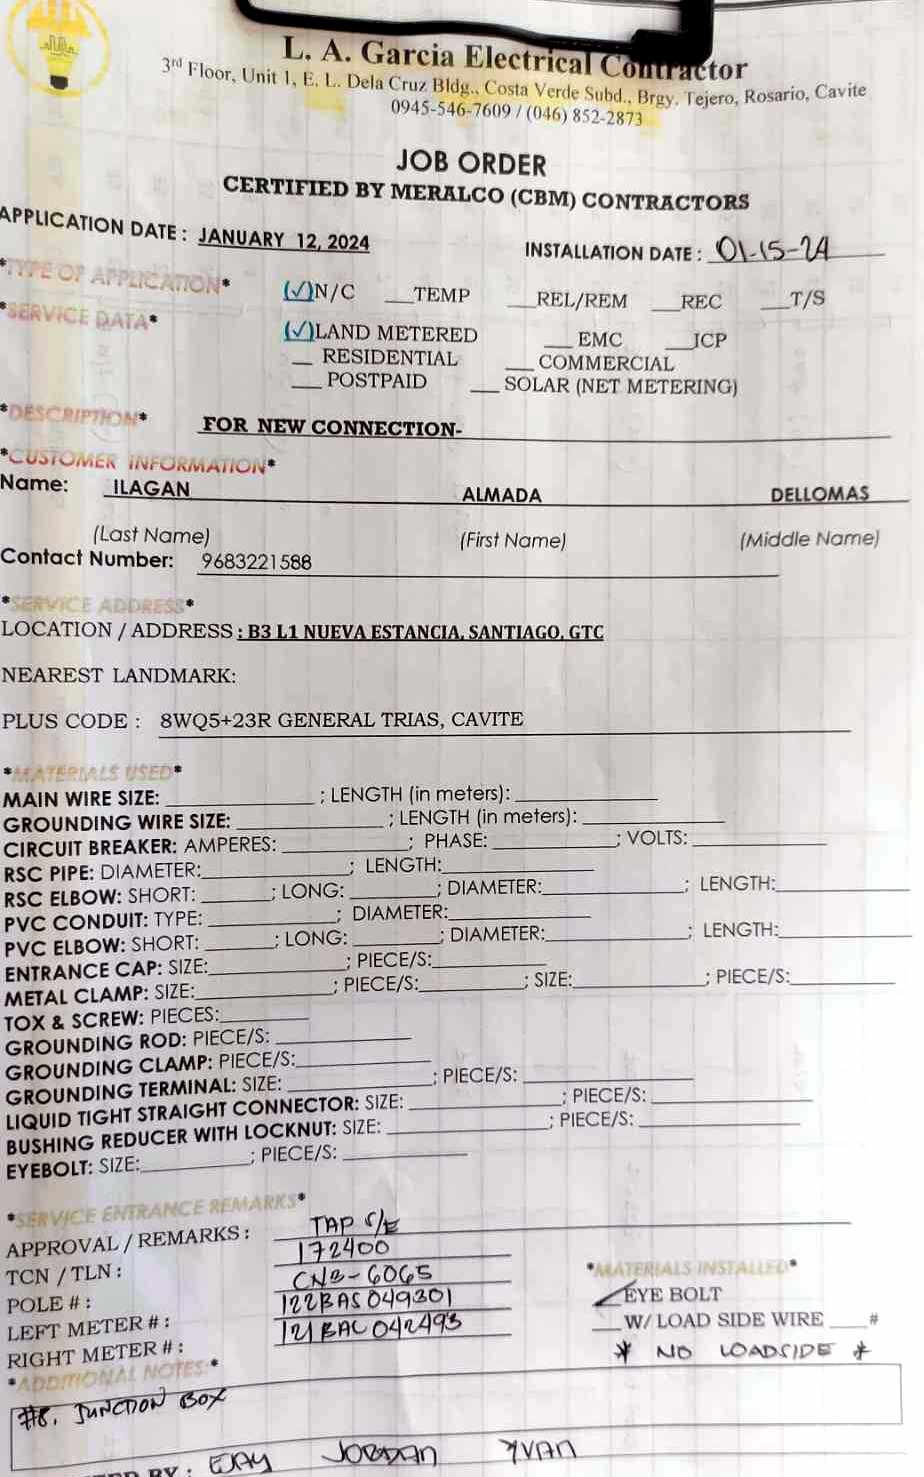 L. A. Garcia Electrical Contractor
3rd Floor, Unit 1, E. L. Dela Cruz Bldg., Costa Verde Subd., Brgy. Tejero, Rosario, Cavite
0945-546-7609 / (046) 852-2873
JOB ORDER
CERTIFIED BY MERALCO (CBM) CONTRACTORS
APPLICATION DATE : JANUARY 12, 2024 INSTALLATION DATE : 01-15-24
*TYPE OF APPLICATION* (✓)N/C ___TEMP ___REL/REM ___REC ___T/S
*SERVICE DATA* (✓)LAND METERED ___ EMC ___ICP
___ RESIDENTIAL ___ COMMERCIAL
___ POSTPAID ___ SOLAR (NET METERING)
*DESCRIPTION* FOR NEW CONNECTION-
*CUSTOMER INFORMATION*
Name: ILAGAN ALMADA DELLOMAS
(Last Name) (First Name) (Middle Name)
Contact Number: 9683221588
*SERVICE ADDRESS*
LOCATION / ADDRESS : B3 L1 NUEVA ESTANCIA, SANTIAGO, GTC
NEAREST LANDMARK:
PLUS CODE : 8WQ5+23R GENERAL TRIAS, CAVITE
*MATERIALS USED*
MAIN WIRE SIZE: ___ ; LENGTH (in meters): ___
GROUNDING WIRE SIZE: ___ ; LENGTH (in meters): ___
CIRCUIT BREAKER: AMPERES: ___ ; PHASE: ___ ; VOLTS: ___
RSC PIPE: DIAMETER: ___ ; LENGTH: ___
RSC ELBOW: SHORT: ___ ; LONG: ___ ; DIAMETER: ___ ; LENGTH: ___
PVC CONDUIT: TYPE: ___ ; DIAMETER: ___
PVC ELBOW: SHORT: ___ ; LONG: ___ ; DIAMETER: ___ ; LENGTH: ___
ENTRANCE CAP: SIZE: ___ ; PIECE/S: ___
METAL CLAMP: SIZE: ___ ; PIECE/S: ___ ; SIZE: ___ ; PIECE/S: ___
TOX & SCREW: PIECES: ___
GROUNDING ROD: PIECE/S: ___
GROUNDING CLAMP: PIECE/S: ___
GROUNDING TERMINAL: SIZE: ___ ; PIECE/S: ___
LIQUID TIGHT STRAIGHT CONNECTOR: SIZE: ___ ; PIECE/S: ___
BUSHING REDUCER WITH LOCKNUT: SIZE: ___ ; PIECE/S: ___
EYEBOLT: SIZE: ___ ; PIECE/S: ___
*SERVICE ENTRANCE REMARKS*
APPROVAL / REMARKS : TAP S/E
TCN / TLN : 172400
POLE # : CNB-6065
LEFT METER # : 122BAS049301
RIGHT METER # : 121BAC042493
*MATERIALS INSTALLED*
EYE BOLT
___ W/ LOAD SIDE WIRE ___#
* NO LOADSIDE *
*ADDITIONAL NOTES:*
#8. JUNCTION BOX
BY : EJAY JORDAN YVAN